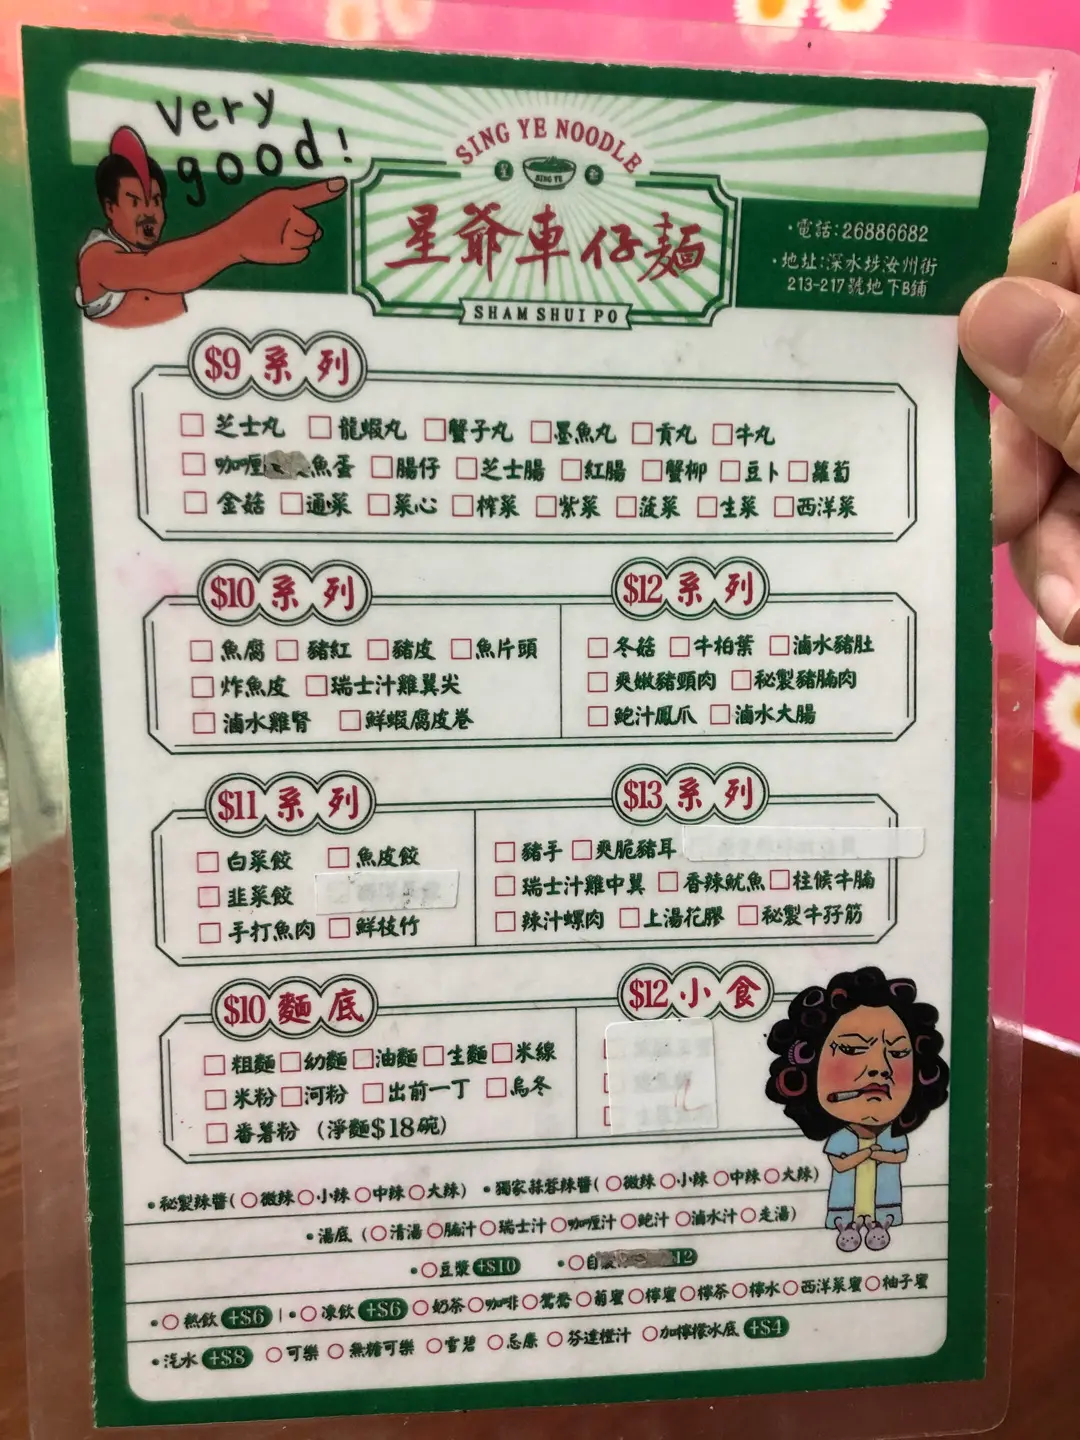 very
good!
SING YE NOODLE
SING YE
星爺車仔麵
SHAM SHUI PO
·電話:26886682
·地址:深水埗汝州街
213-217號地下B鋪
$9系列
芝士丸 龍蝦丸 蟹子丸 墨魚丸 貢丸 牛丸
咖喱 魚蛋 腸仔 芝士腸 紅腸 蟹柳 豆卜 蘿蔔
金菇 通菜 菜心 榨菜 紫菜 菠菜 生菜 西洋菜
$10系列
魚腐 豬紅 豬皮 魚片頭
炸魚皮 瑞士汁雞翼尖
滷水雞腎 鮮蝦腐皮卷
$12系列
冬菇 牛柏葉 滷水豬肚
爽嫩豬頸肉 秘製豬腩肉
鮑汁鳳爪 滷水大腸
$11系列
白菜餃 魚皮餃
韭菜餃
手打魚肉 鮮枝竹
$13系列
豬手 爽脆豬耳
瑞士汁雞中翼 香辣魷魚 柱候牛腩
辣汁螺肉 上湯花膠 秘製牛孖筋
$10麵底
粗麵 幼麵 油麵 生麵 米線
米粉 河粉 出前一丁 烏冬
番薯粉 (淨麵$18碗)
$12小食
·秘製辣醬(微辣 小辣 中辣 大辣) ·獨家蒜蓉辣醬(微辣 小辣 中辣 大辣)
·湯底(清湯 腩汁 瑞士汁 咖喱汁 鮑汁 滷水汁 走湯)
·豆漿+$10 ·自 12
·熱飲+$6 |·凍飲+$6 奶茶 咖啡 鴛鴦 菊蜜 檸蜜 檸茶 檸水 西洋菜蜜 柚子蜜
·汽水+$8 可樂 無糖可樂 雪碧 忌廉 芬達橙汁 加檸檬冰底+$4